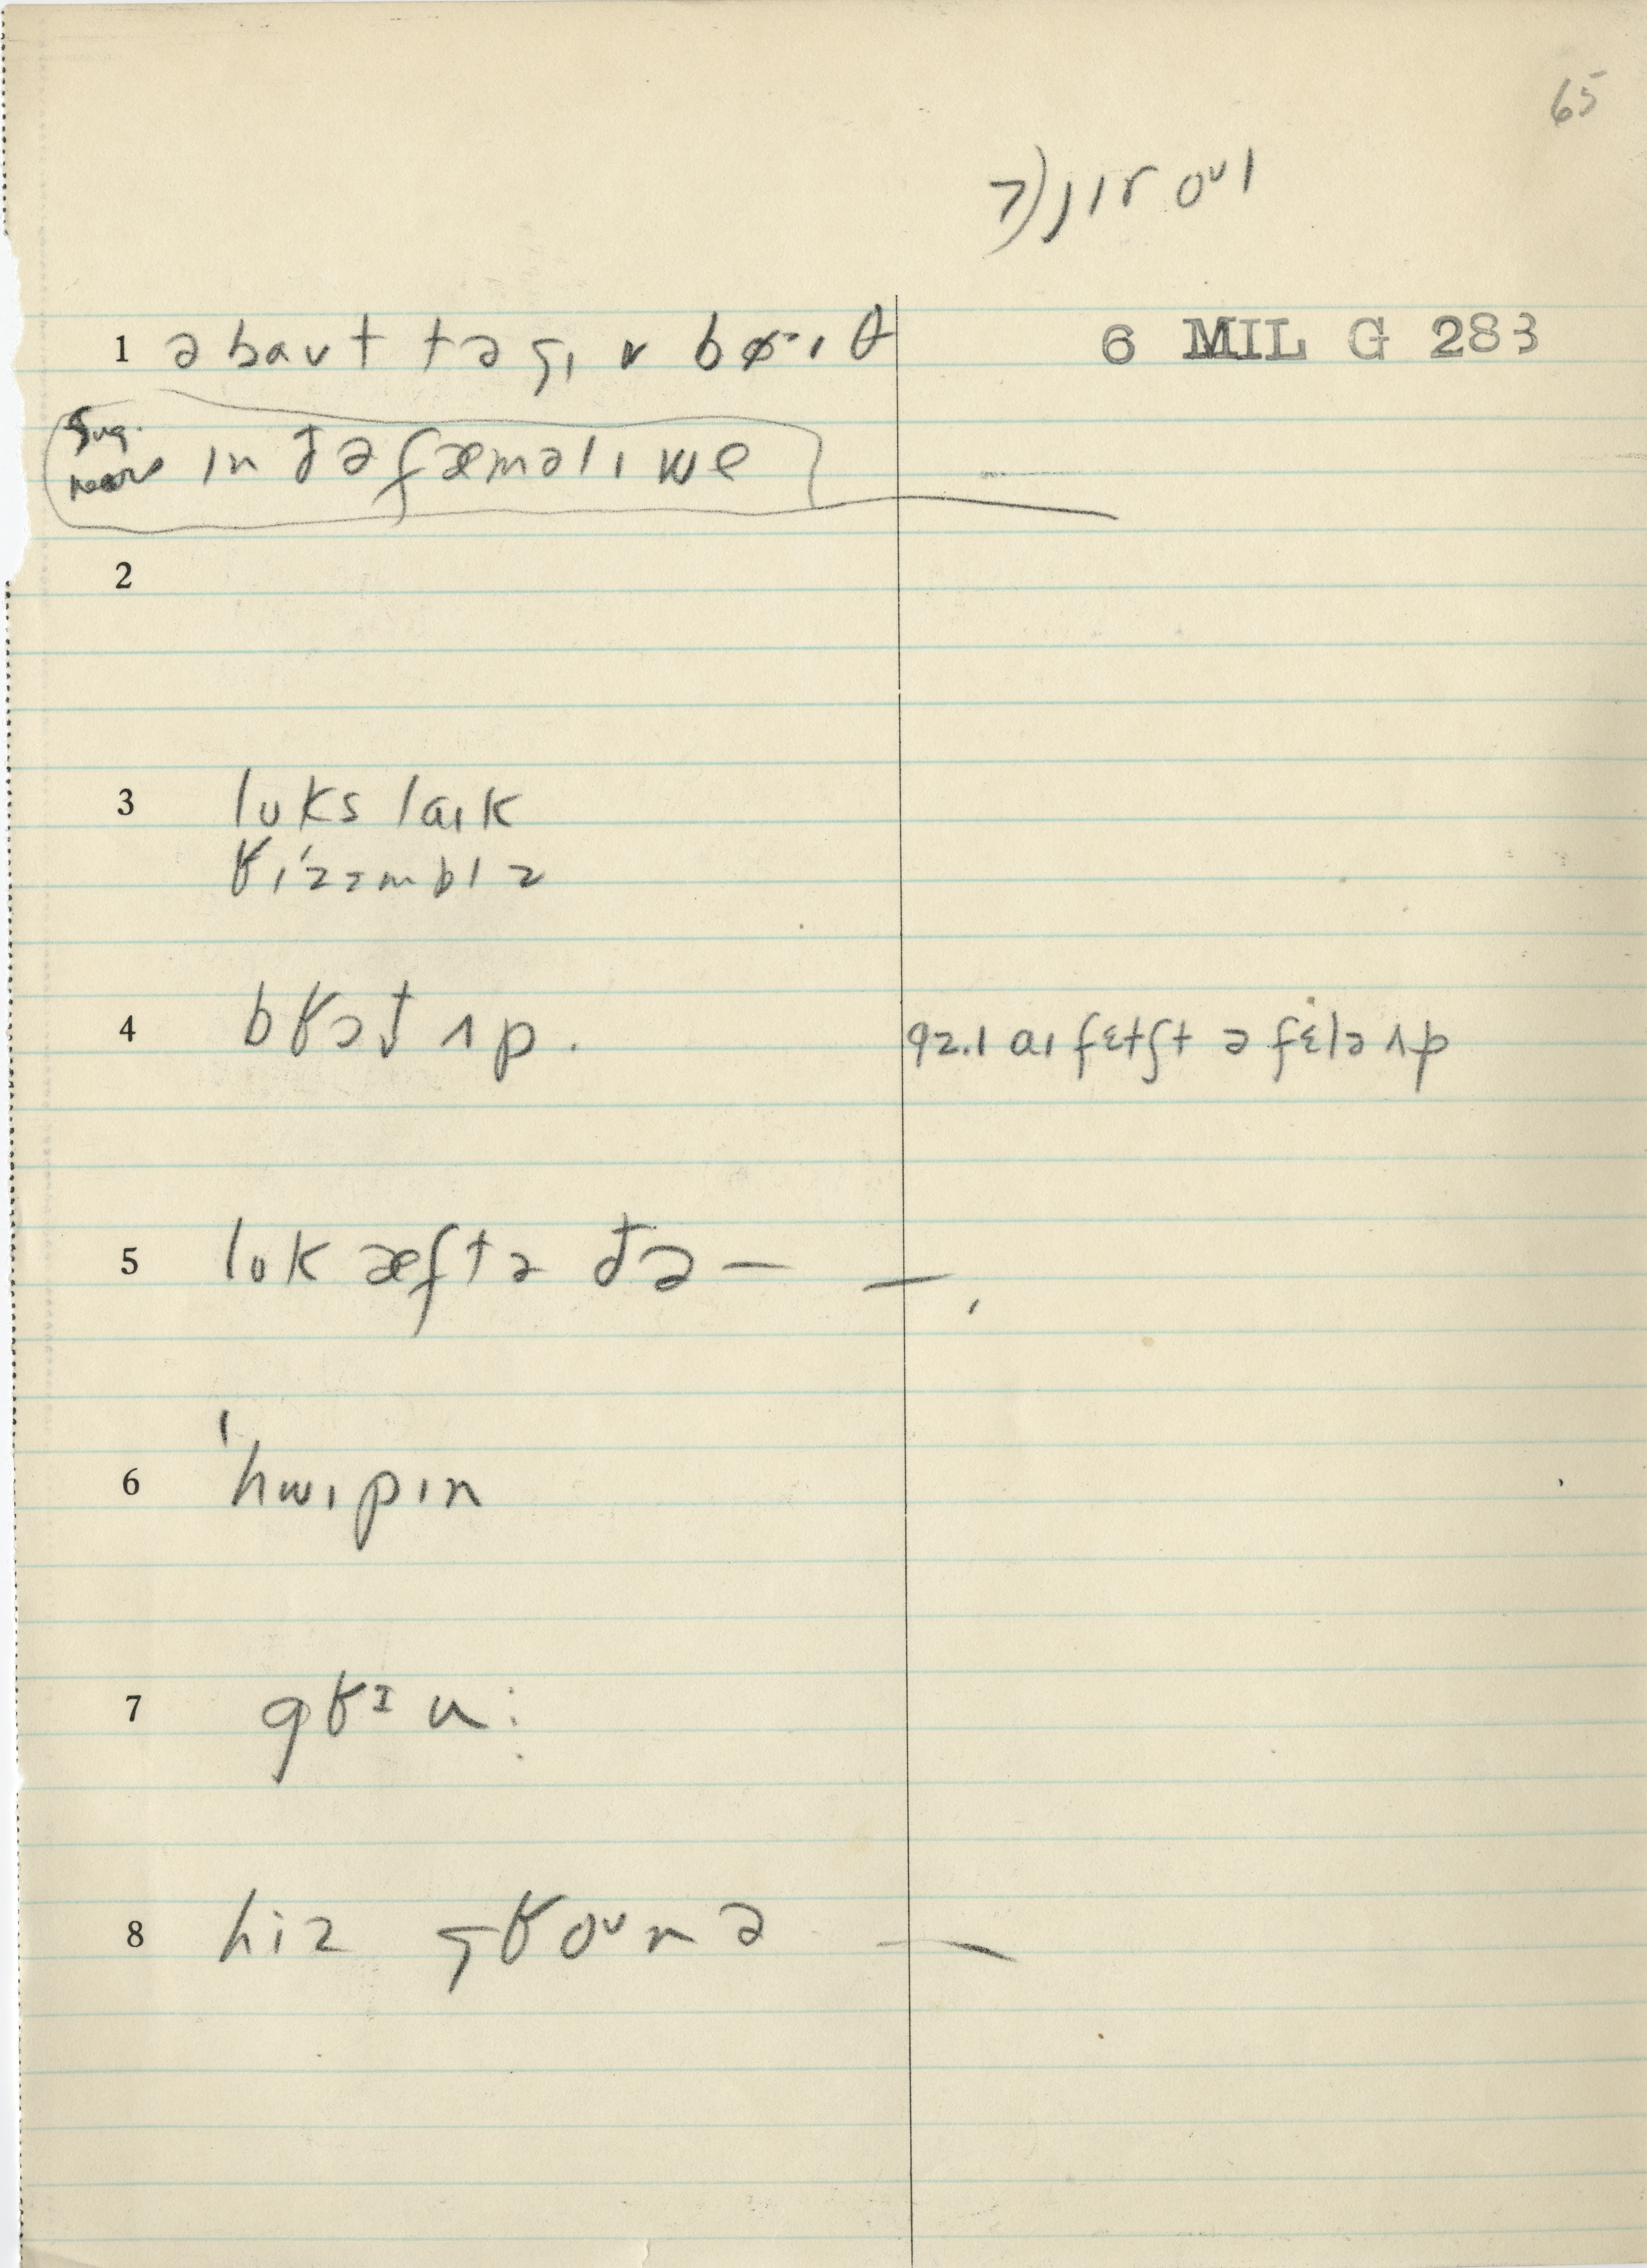 65
7) jɪr oᶷl
1 əbaʊt tə gɪv bɚɪθ
6 MIL G 283
Sug.
near ɪn ðə fæməlɪ we
2
3 lʊks laɪk
rɪ'zɛmblz
4 brɔt ʌp.
92.1 aɪ fɛtʃt ə fɛlə ʌp
5 lʊk æftə ðə —
6 'hwɪpɪn
7 grɪu:
8 hiz groᶷnə —